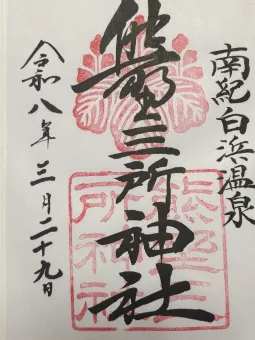 南紀白浜温泉
熊野三所神社
令和八年三月二十九日
熊野三所神社